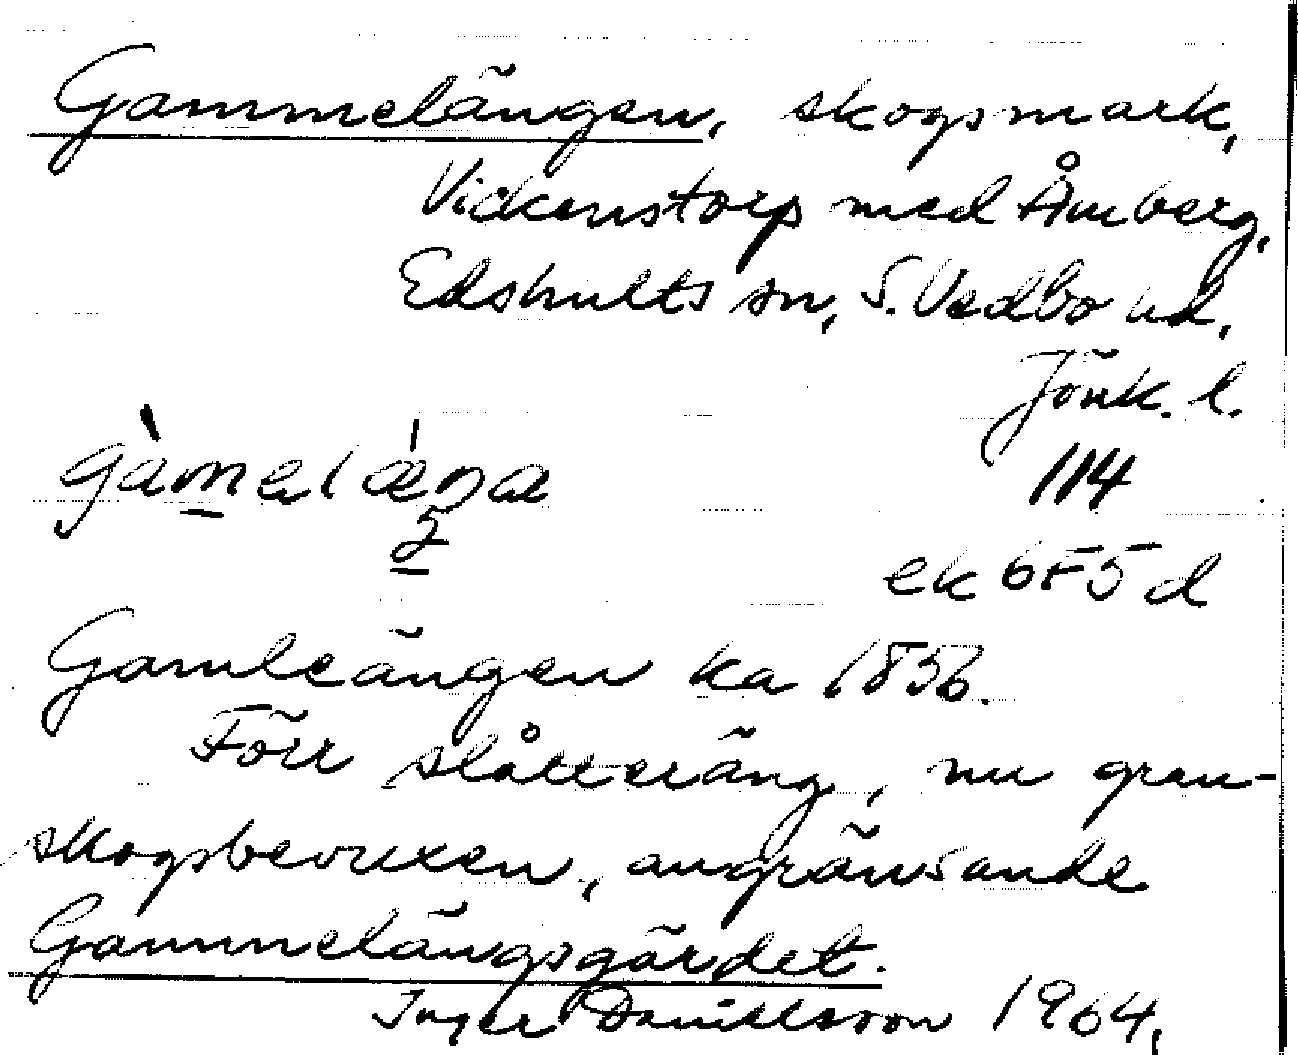 Gammelängen, skogsmark,
Vickenstorp med Åmberg,
Edshults sn, S. Vedbo hd,
Jönk. l.
gàmelæ̀ŋa
5
114
ek 6F5d
Gamleängen ka 1856.
Förr slåtteräng, nu gran-
skogsbevuxen, angränsande
Gammelängsgärdet.
Inger Daniellsson 1964.